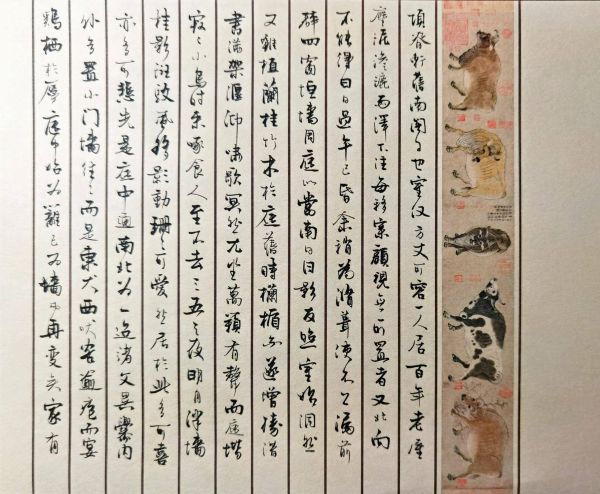 項脊軒舊南閣子也室僅方丈可容一人居百年老屋
塵泥滲漉雨澤下注每移案顧視無可置者又北向
不能得日日過午已昏余稍為脩葺使不上漏前
辟四窗垣墻周庭以當南日日影反照室始洞然
又雜植蘭桂竹木於庭舊時欄楯亦遂增勝借
書滿架偃仰嘯歌冥然兀坐萬籟有聲而庭堦
寂〻小鳥時來啄食人至不去三五之夜明月半墻
桂影斑駁風移影動珊〻可愛然居於此多可喜
亦多可悲先是庭中通南北為一迨諸父異爨內
外多置小门墻往〻而是東犬西吠客逾庖而宴
鷄栖於廳庭中始為籬已為墻凡再變矣家有